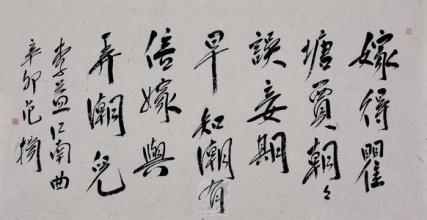 嫁得瞿
塘賈朝々
誤妾期
早知潮有
信嫁與
弄潮兒
李益江南曲
辛卯范